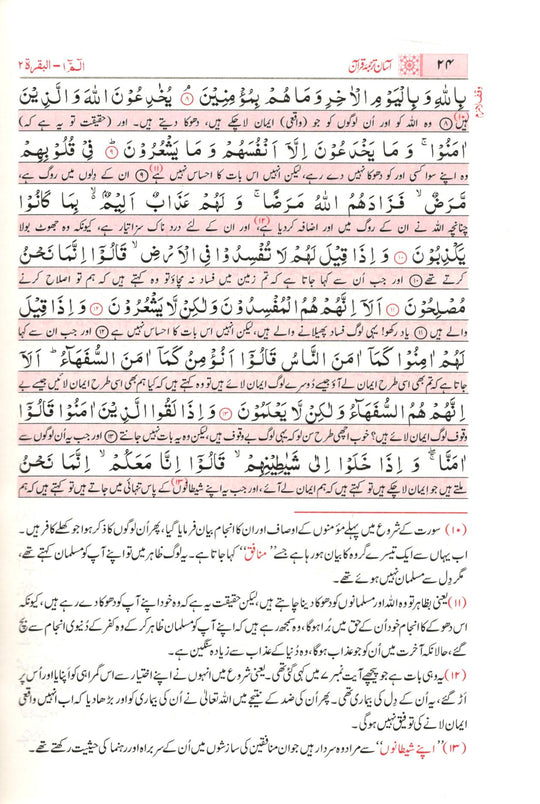 ۲۴ آسان ترجمۂ قرآن الٓمّٓ ۱ – البقرۃ ۲
بِاللّٰهِ وَ بِالْیَوْمِ الْاٰخِرِ وَ مَا هُمْ بِمُؤْمِنِیْنَ ۘ ۸ یُخٰدِعُوْنَ اللّٰهَ وَ الَّذِیْنَ
ہیں (۱۰) ۸ وہ اللہ کو اور اُن لوگوں کو جو (واقعی) ایمان لاچکے ہیں، دھوکا دیتے ہیں۔ اور (حقیقت تو یہ ہے کہ)
اٰمَنُوْا ۚ وَ مَا یَخْدَعُوْنَ اِلَّاۤ اَنْفُسَهُمْ وَ مَا یَشْعُرُوْنَ ؕ ۹ فِیْ قُلُوْبِهِمْ
وہ اپنے سوا کسی اور کو دھوکا نہیں دے رہے، لیکن انہیں اس بات کا احساس نہیں ہے (۱۱) ۹ ان کے دِلوں میں روگ ہے،
مَّرَضٌ ۙ فَزَادَهُمُ اللّٰهُ مَرَضًا ۚ وَ لَهُمْ عَذَابٌ اَلِیْمٌۢ ۙ بِمَا كَانُوْا
چنانچہ اللہ نے ان کے روگ میں اور اضافہ کردیا ہے، (۱۲) اور ان کے لئے درد ناک سزا تیار ہے، کیونکہ وہ جھوٹ بولا
یَكْذِبُوْنَ ۱۰ وَ اِذَا قِیْلَ لَهُمْ لَا تُفْسِدُوْا فِی الْاَرْضِ ۙ قَالُوْۤا اِنَّمَا نَحْنُ
کرتے تھے ۱۰ اور جب اُن سے کہا جاتا ہے کہ تم زمین میں فساد نہ مچاؤ تو وہ کہتے ہیں کہ ہم تو اصلاح کرنے
مُصْلِحُوْنَ ۱۱ اَلَاۤ اِنَّهُمْ هُمُ الْمُفْسِدُوْنَ وَ لٰكِنْ لَّا یَشْعُرُوْنَ ۱۲ وَ اِذَا قِیْلَ
والے ہیں ۱۱ یاد رکھو! یہی لوگ فساد پھیلانے والے ہیں، لیکن انہیں اس بات کا احساس نہیں ہے ۱۲ اور جب ان سے کہا
لَهُمْ اٰمِنُوْا كَمَاۤ اٰمَنَ النَّاسُ قَالُوْۤا اَنُؤْمِنُ كَمَاۤ اٰمَنَ السُّفَهَآءُ ؕ اَلَاۤ
جاتا ہے کہ تم بھی اسی طرح ایمان لے آؤ جیسے دُوسرے لوگ ایمان لائے ہیں تو وہ کہتے ہیں کہ کیا ہم بھی اسی طرح ایمان لائیں جیسے بے
اِنَّهُمْ هُمُ السُّفَهَآءُ وَ لٰكِنْ لَّا یَعْلَمُوْنَ ۱۳ وَ اِذَا لَقُوا الَّذِیْنَ اٰمَنُوْا قَالُوْۤا
وقوف لوگ ایمان لائے ہیں؟ خوب اچھی طرح سن لو کہ یہی لوگ بے وقوف ہیں، لیکن وہ یہ بات نہیں جانتے ۱۳ اور جب یہ اُن لوگوں سے
اٰمَنَّا ۚۖ وَ اِذَا خَلَوْا اِلٰى شَیٰطِیْنِهِمْ ۙ قَالُوْۤا اِنَّا مَعَكُمْ ۙ اِنَّمَا نَحْنُ
ملتے ہیں جو ایمان لاچکے ہیں تو کہتے ہیں کہ ہم ایمان لے آئے، اور جب یہ اپنے شیطانوں (۱۳) کے پاس تنہائی میں جاتے ہیں تو کہتے ہیں کہ ہم
(۱۰) سورت کے شروع میں پہلے مؤمنوں کے اوصاف اور ان کا انجام بیان فرمایا گیا، پھر اُن لوگوں کا ذکر ہوا جو کھلے کافر ہیں۔
اب یہاں سے ایک تیسرے گروہ کا بیان ہورہا ہے جسے ”منافق“ کہا جاتا ہے۔ یہ لوگ ظاہر میں تو اپنے آپ کو مسلمان کہتے تھے،
مگر دِل سے مسلمان نہیں ہوئے تھے۔
(۱۱) یعنی بظاہر تو وہ اللہ اور مسلمانوں کو دھوکا دینا چاہتے ہیں، لیکن حقیقت یہ ہے کہ وہ خود اپنے آپ کو دھوکا دے رہے ہیں، کیونکہ
اس دھوکے کا انجام خود اُن کے حق میں بُرا ہوگا، وہ سمجھ رہے ہیں کہ اپنے آپ کو مسلمان ظاہر کرکے وہ کفر کے دُنیوی انجام سے بچ
گئے، حالانکہ آخرت میں جو عذاب ہوگا، وہ دُنیا کے عذاب سے زیادہ سنگین ہے۔
(۱۲) یہ وہی بات ہے جو پیچھے آیت نمبر ۷ میں کہی گئی تھی۔ یعنی شروع میں انہوں نے اپنے اختیار سے اس گمراہی کو اَپنایا اور اُس پر
اَڑ گئے، یہ اُن کے دِل کی بیماری تھی۔ پھر اُن کی ضد کے نتیجے میں اللہ تعالیٰ نے اُن کی بیماری کو اور بڑھا دیا کہ اب انہیں واقعی
ایمان لانے کی توفیق نہیں ہوگی۔
(۱۳) ”اپنے شیطانوں“ سے مراد وہ سردار ہیں جو ان منافقین کی سازشوں میں اُن کے سربراہ اور رہنما کی حیثیت رکھتے تھے۔